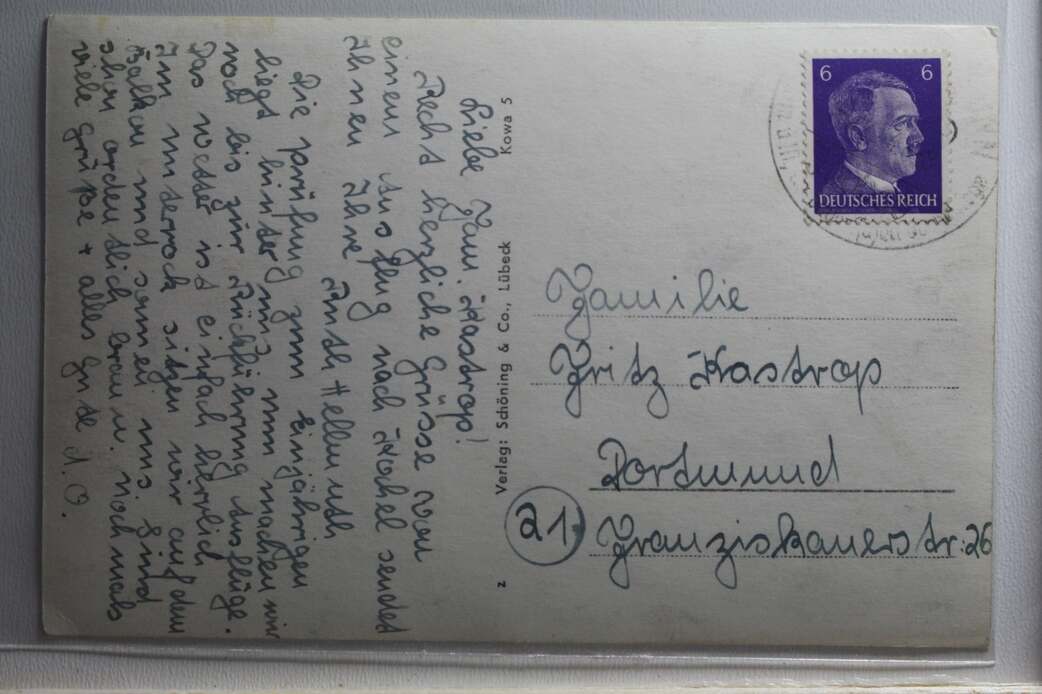 Liebe Fam. Kastrop!
Recht herzliche Grüsse von
einem Ausflug nach Kochel sendet
Ihnen Ihre Ruth Hellmuth
Die Prüfung zum Einjährigen
liegt hinter uns, nun machen wir
noch bis zur Rückführung Ausflüge.
Das Wetter ist einfach herrlich
Im Unterrock sitzen wir auf dem
Balkon und sonnen uns. Sind
schon ordentlich braun. Nochmals
viele Grüße + alles Gute d. O.
Verlag: Schöning & Co., Lübeck Kowa 5
z
6 6
DEUTSCHES REICH
Familie
Fritz Kastrop
21
Dortmund
Franziskanerstr. 26